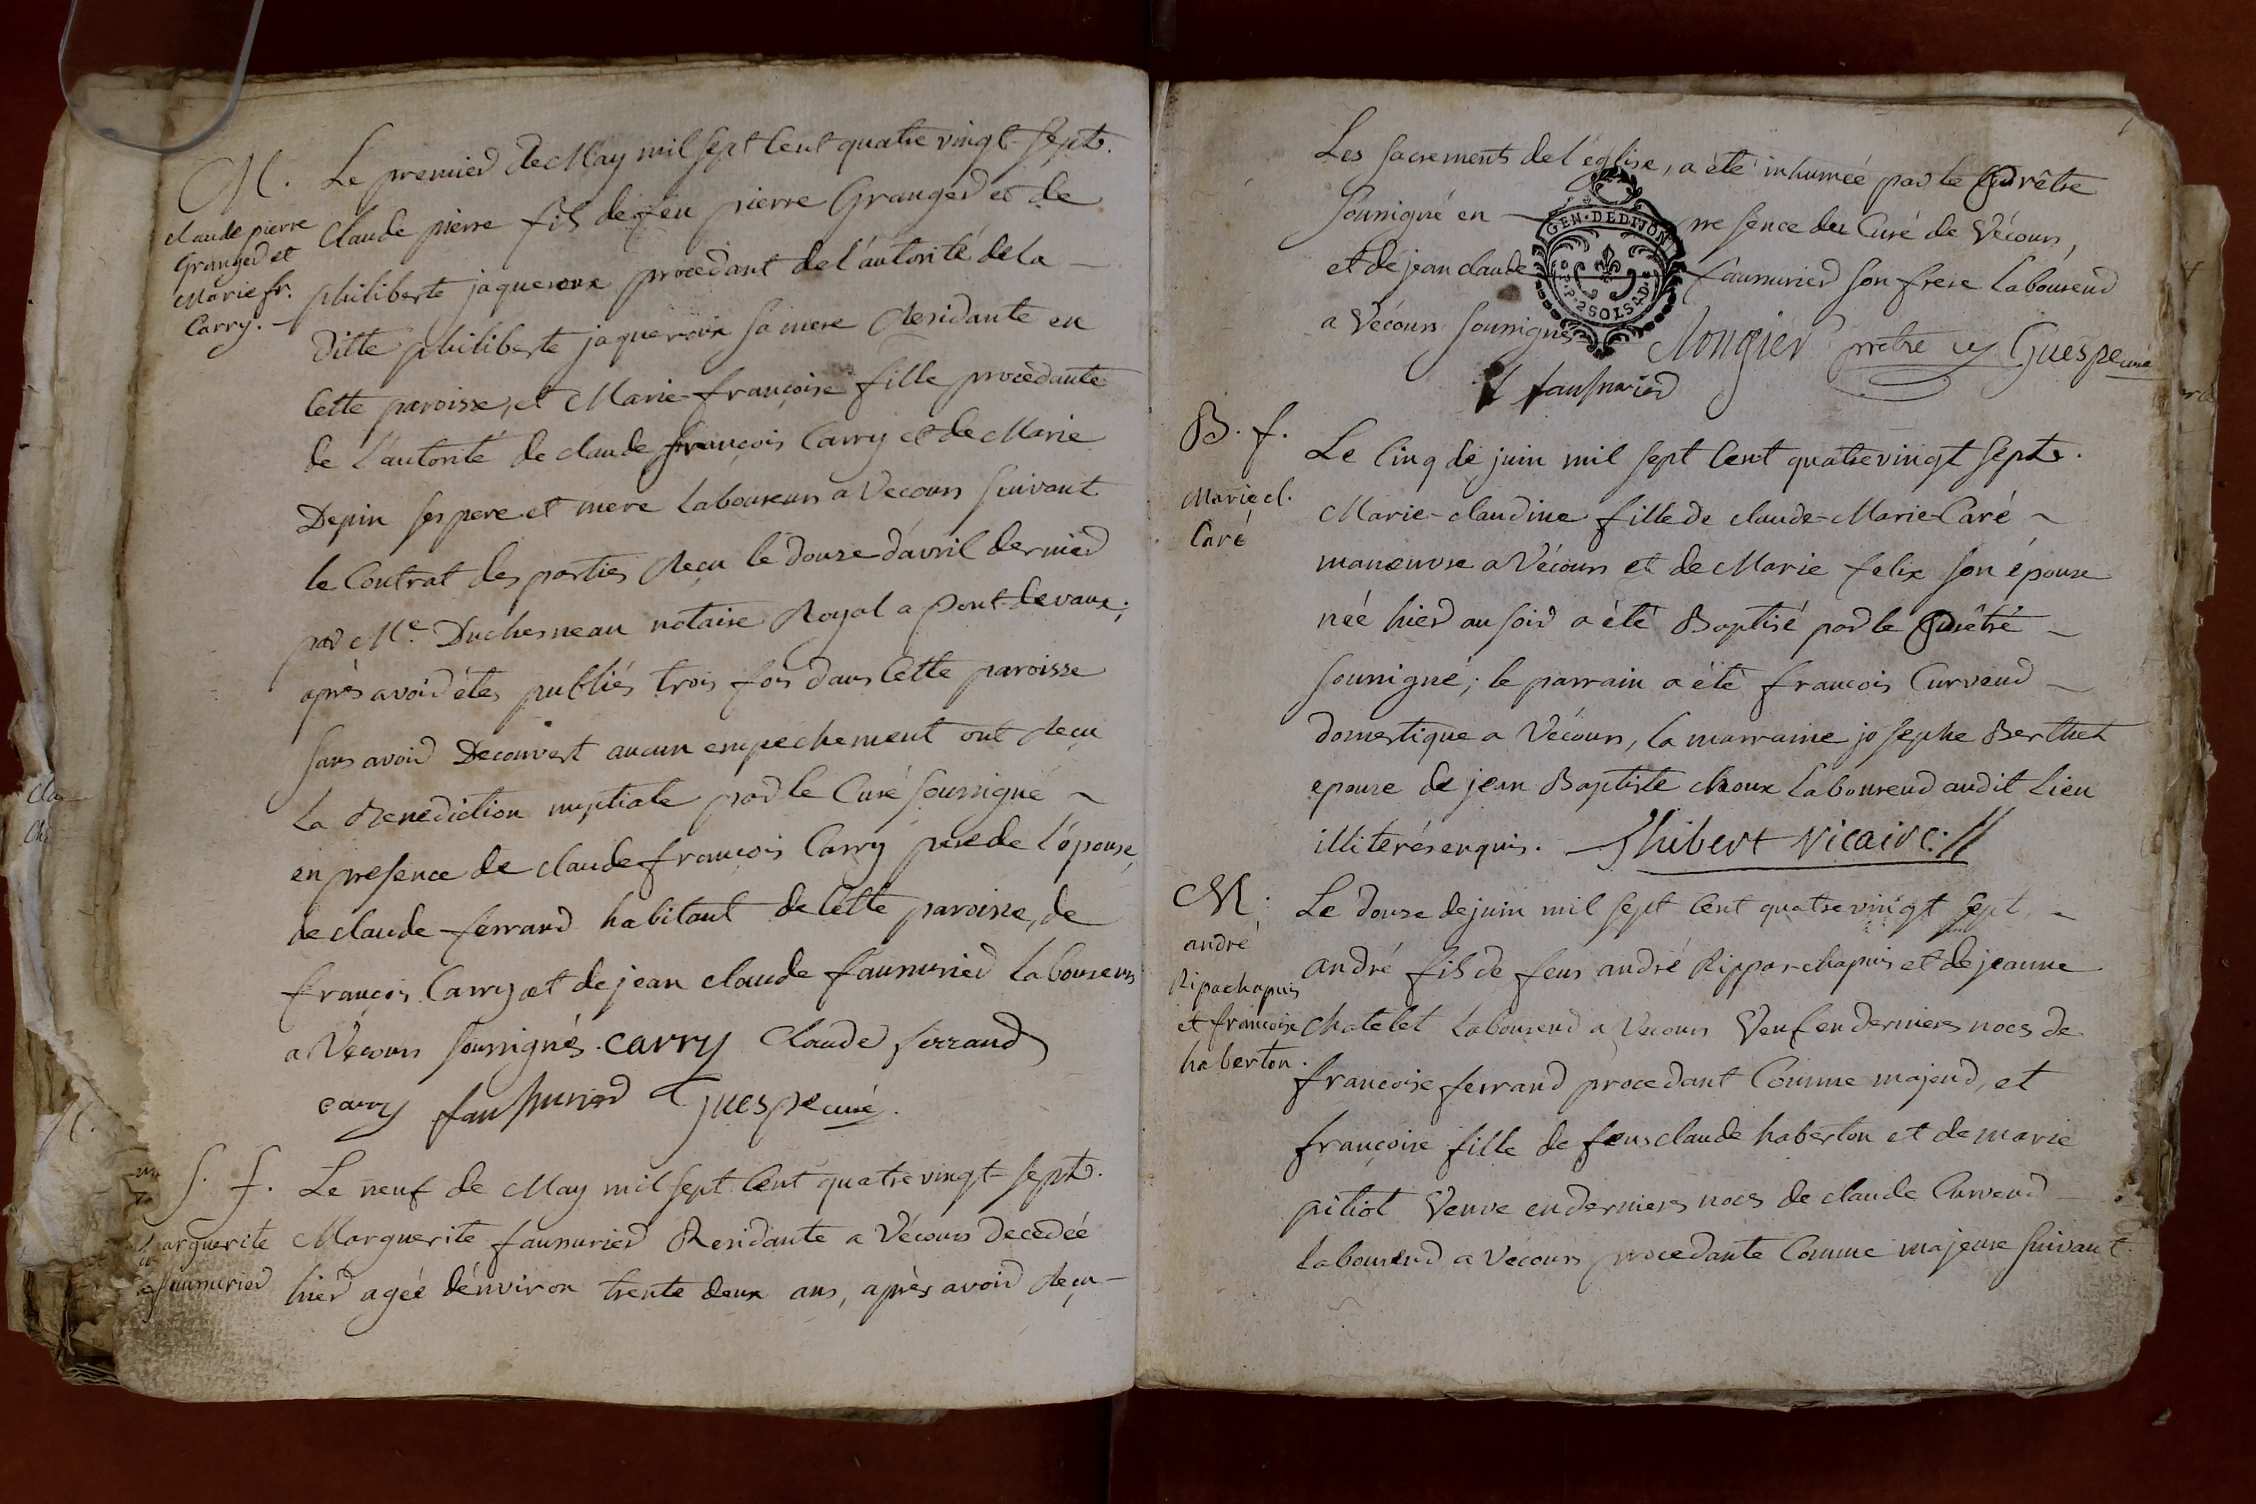 M.
claude pierre
Granger et
Marie fr.
Carry.
Le premier de May mil sept Cent quatre vingt-sept.
Claude pierre fils de feu pierre Granger et de
philiberte jaqueroux procedant de l'autorité de la
ditte philiberte jaqueroux sa mere Residante en
Cette paroisse, et Marie-françoise fille procedante
de l'autorité de claude françois Carry et de Marie
Depin ses pere et mere Laboureurs a Vecours suivant
le Contrat des parties Reçu le douze d'avril dernier
par Me. Duchesneau notaire Royal a pont-devaux;
après avoir étés publiés trois fois dans Cette paroisse
sans avoir Decouvert aucun empechement ont Reçu
La Benediction nuptiale par le Curé soussigné
en presence de claude françois Carry pere de l'épouse,
de claude ferrand habitant de Cette paroisse, de
françois Carry et de jean claude faussurier Laboureurs
a Vécours soussignés. carry Claude ferrand
carry faussurier Guespe curé.
S. f.
Marguerite
faussurier
Le neuf de May mil sept Cent quatre vingt-sept.
Marguerite faussurier Residante a Vécours decedéé
hier agéé d'énviron trente deux ans, après avoir Reçu
Les sacrements de l'église, a été inhuméé par le prêtre
soussigné en presence du Curé de Vécours,
et de jean claude faussurier son frere Laboureur
a Vécours soussignés
GEN·DE DIJON
2 SOLS
prêtre Guespe curé
faussurier
B. f.
Marie cl.
Caré
Le Cinq de juin mil sept Cent quatre vingt sept.
Marie-claudine fille de claude-Marie-Caré
manœuvre a Vécours et de Marie felix son épouse
néé hier au soir a été Baptisé par le prêtre
soussigné; le parrain a été françois Curveur
domestique a Vécours, la marraine josephe Berthet
epouse de jean Baptiste choux Laboureur audit Lieu
illiterés enquis. Thibert vicaire.
M.
andré
Ripachapuis
et françoise
haberton.
Le douze de juin mil sept Cent quatre vingt sept,
andré fils de feus andré Rippas-chapuis et de jeanne
Chatelet Laboureur a Vecours Veuf en dernieres noces de
françoise ferrand procedant Comme majeur, et
françoise fille de feus claude haberton et de marie
pitiot Veuve en dernieres noces de claude Curveur
Laboureur a Vecours procedante Comme majeure suivant